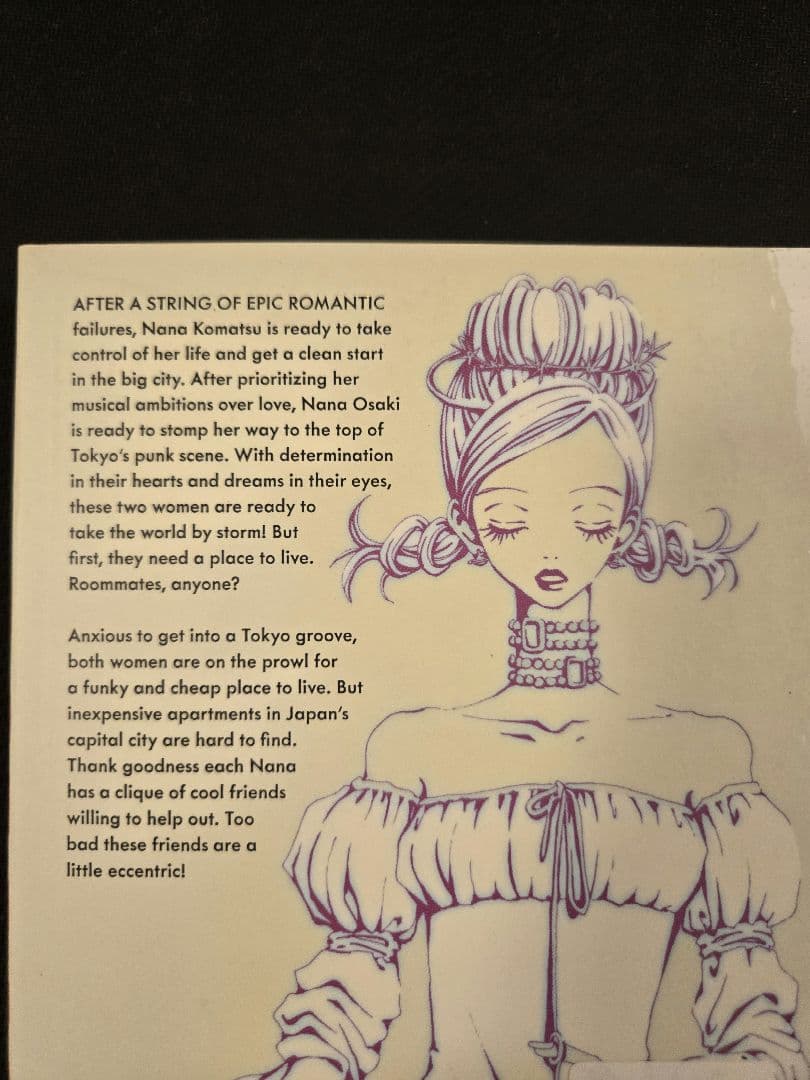 AFTER A STRING OF EPIC ROMANTIC
failures, Nana Komatsu is ready to take
control of her life and get a clean start
in the big city. After prioritizing her
musical ambitions over love, Nana Osaki
is ready to stomp her way to the top of
Tokyo's punk scene. With determination
in their hearts and dreams in their eyes,
these two women are ready to
take the world by storm! But
first, they need a place to live.
Roommates, anyone?
Anxious to get into a Tokyo groove,
both women are on the prowl for
a funky and cheap place to live. But
inexpensive apartments in Japan's
capital city are hard to find.
Thank goodness each Nana
has a clique of cool friends
willing to help out. Too
bad these friends are a
little eccentric!